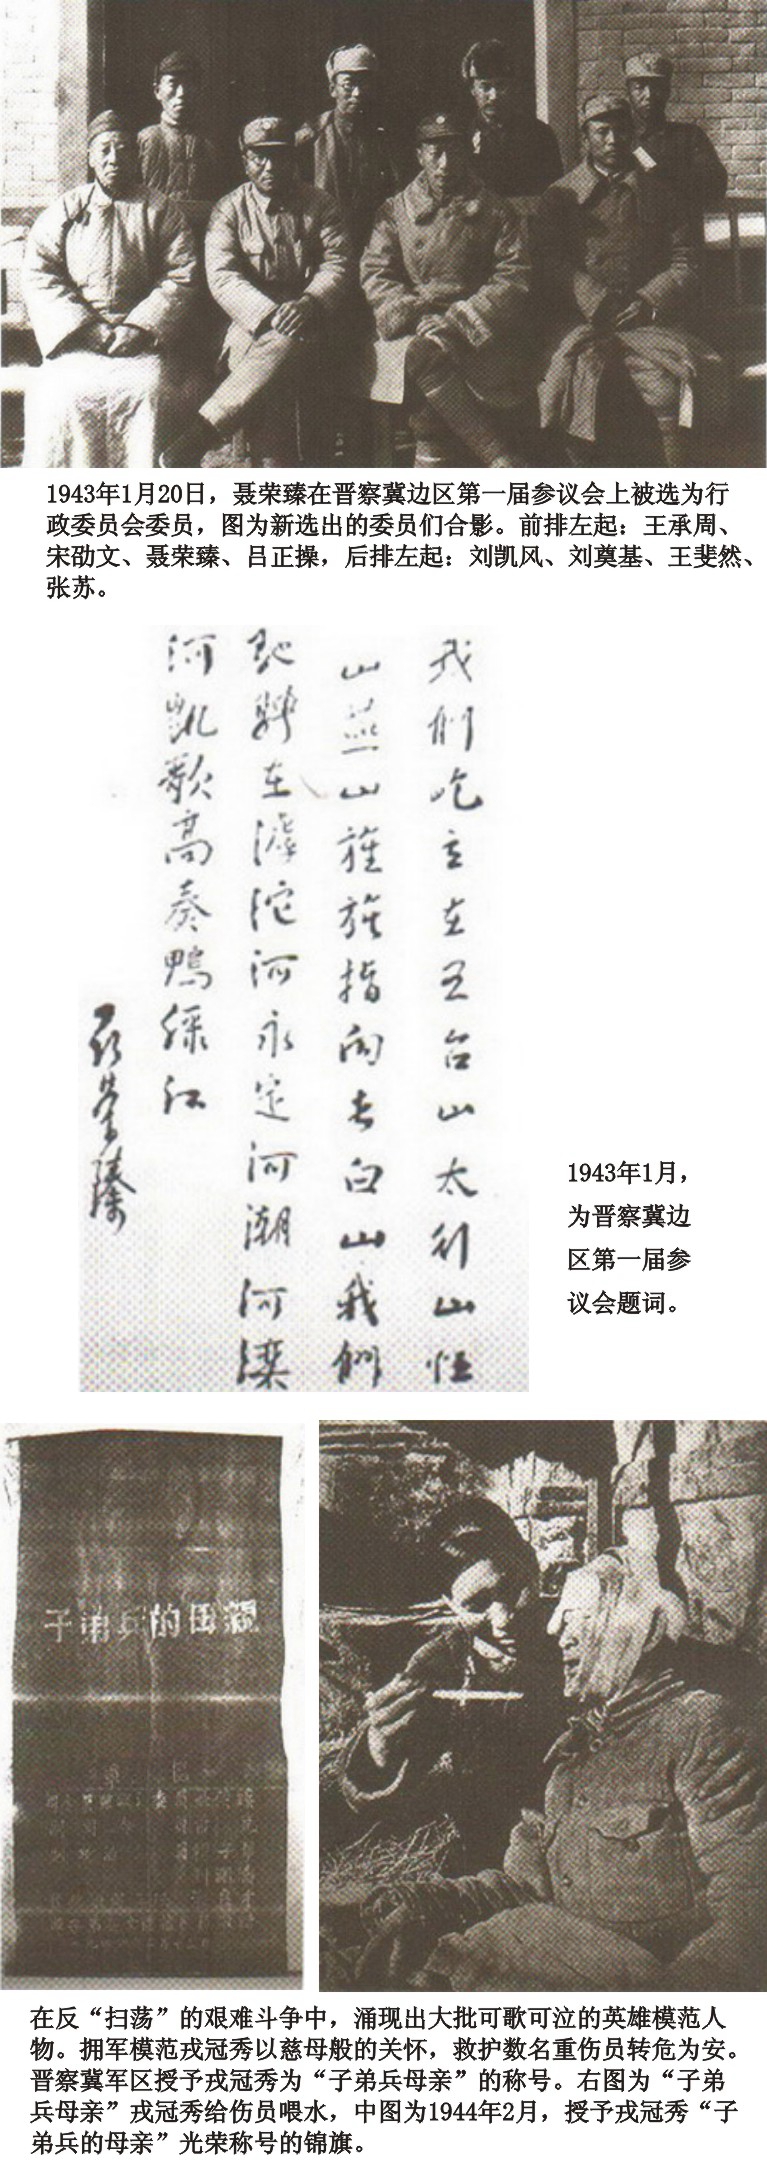 1943年1月20日，聂荣臻在晋察冀边区第一届参议会上被选为行
政委员会委员，图为新选出的委员们合影。前排左起：王承周、
宋劭文、聂荣臻、吕正操，后排左起：刘凯风、刘奠基、王斐然、
张苏。
我們屹立在五台山太行山恒
山燕山旌旗指向长白山我們
馳騁在滹沱河永定河潮河滦
河凱歌高奏鴨綠江
聂荣臻
1943年1月，
为晋察冀边
区第一届参
议会题词。
子弟兵的母親
在反“扫荡”的艰难斗争中，涌现出大批可歌可泣的英雄模范人
物。拥军模范戎冠秀以慈母般的关怀，救护数名重伤员转危为安。
晋察冀军区授予戎冠秀为“子弟兵母亲”的称号。右图为“子弟
兵母亲”戎冠秀给伤员喂水，中图为1944年2月，授予戎冠秀“子
弟兵的母亲”光荣称号的锦旗。